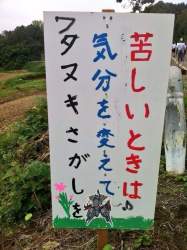 苦しいときは♪
気分を変えて
ワタヌキさがしを